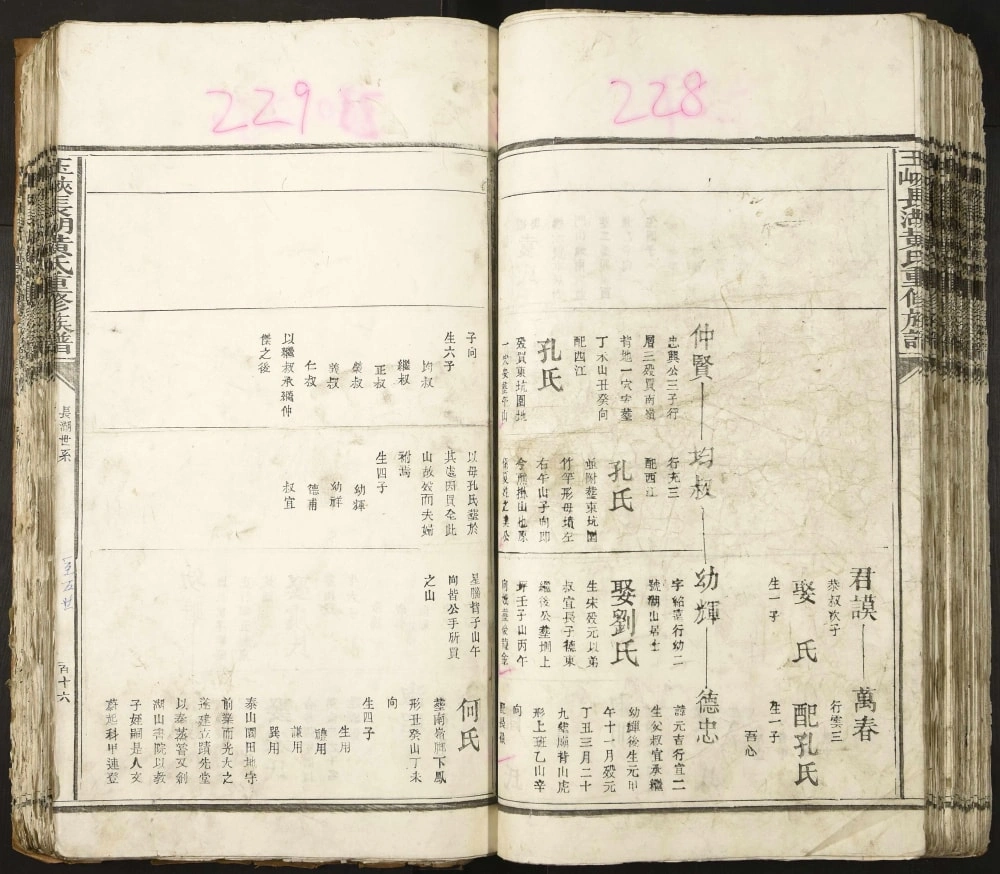 228
玉峽長湖黃氏重修族譜
君謨
恭叔次子
娶 氏
生一子
萬春
行雲三
配孔氏
生一子
吾心
仲賢
忠興公三子行
層三歿買南嶺
背地一穴安塟
丁未山丑癸向
配西江
孔氏
歿買東坑園地
均叔
行克三
配西江
孔氏
並附塟東坑園
竹竿形母墳左
右午山子向即
幼輝
字紹嘉行幼二
號湖山居士
娶劉氏
生宋歿元以弟
叔宜長子德忠
繼後公塟塘上
坪壬子山丙午
德忠
諱元吉行宜二
生父叔宜承繼
幼輝後生元甲
午十一月歿元
丁丑三月二十
九塟廟背山虎
形上班乙山辛
向
229
玉峽長湖黃氏重修族譜
長湖世系
百十六
子向
生六子
均叔
繼叔
正叔
義叔
仁叔
以繼叔承繼仲
傑之後
以母孔氏塟於
其處因買全此
山故公而夫婦
祔焉
生四子
幼輝
幼祥
德甫
叔宜
星腦背子山午
向皆公手所買
之山
何氏
塟南嶺腳下鳳
形丑癸山丁未
向
生四子
生用
聰用
謙用
巽用
泰山園田地守
前業而光大之
遂建立蹟先堂
以奉蒸嘗又創
湖山書院以教
子姪嗣是人文
蔚起科甲連登